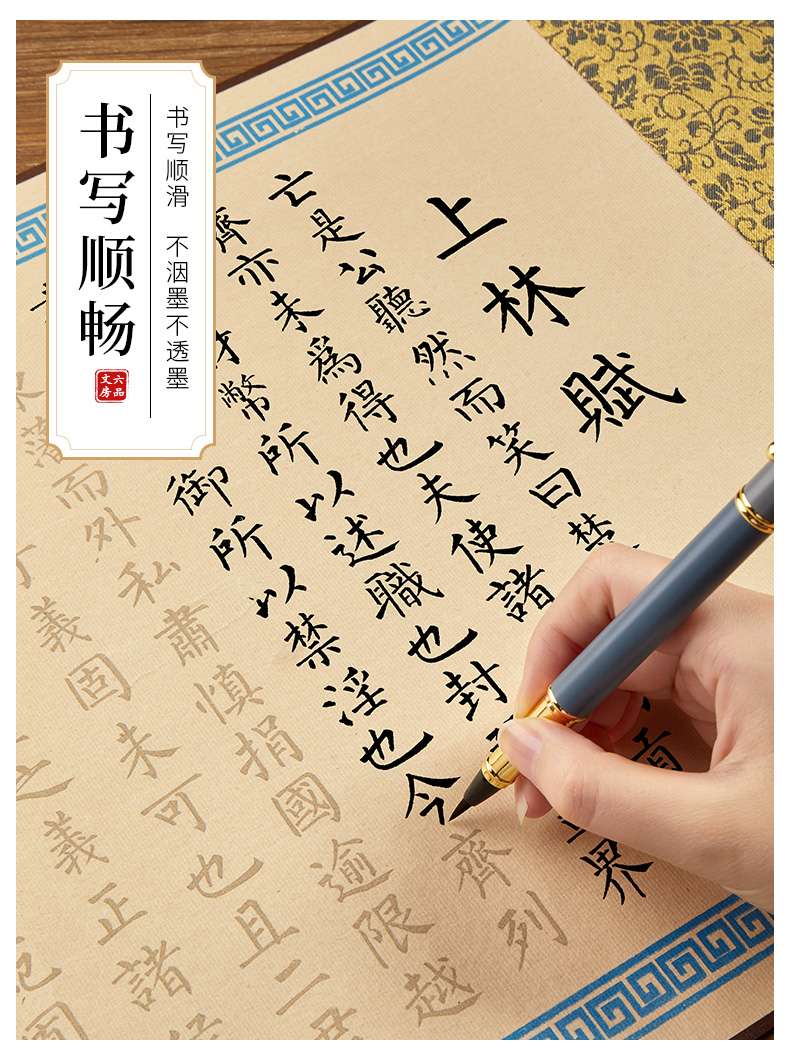 书写顺畅
书写顺滑 不洇墨不透墨
六品文房
上林賦
亡是公聽然而笑曰楚
齊亦未爲得也夫使諸
界
幣所以述職也封
御所以禁淫也今齊列
藩而外私肅慎捐國逾限越
義固未可也且二
義正諸